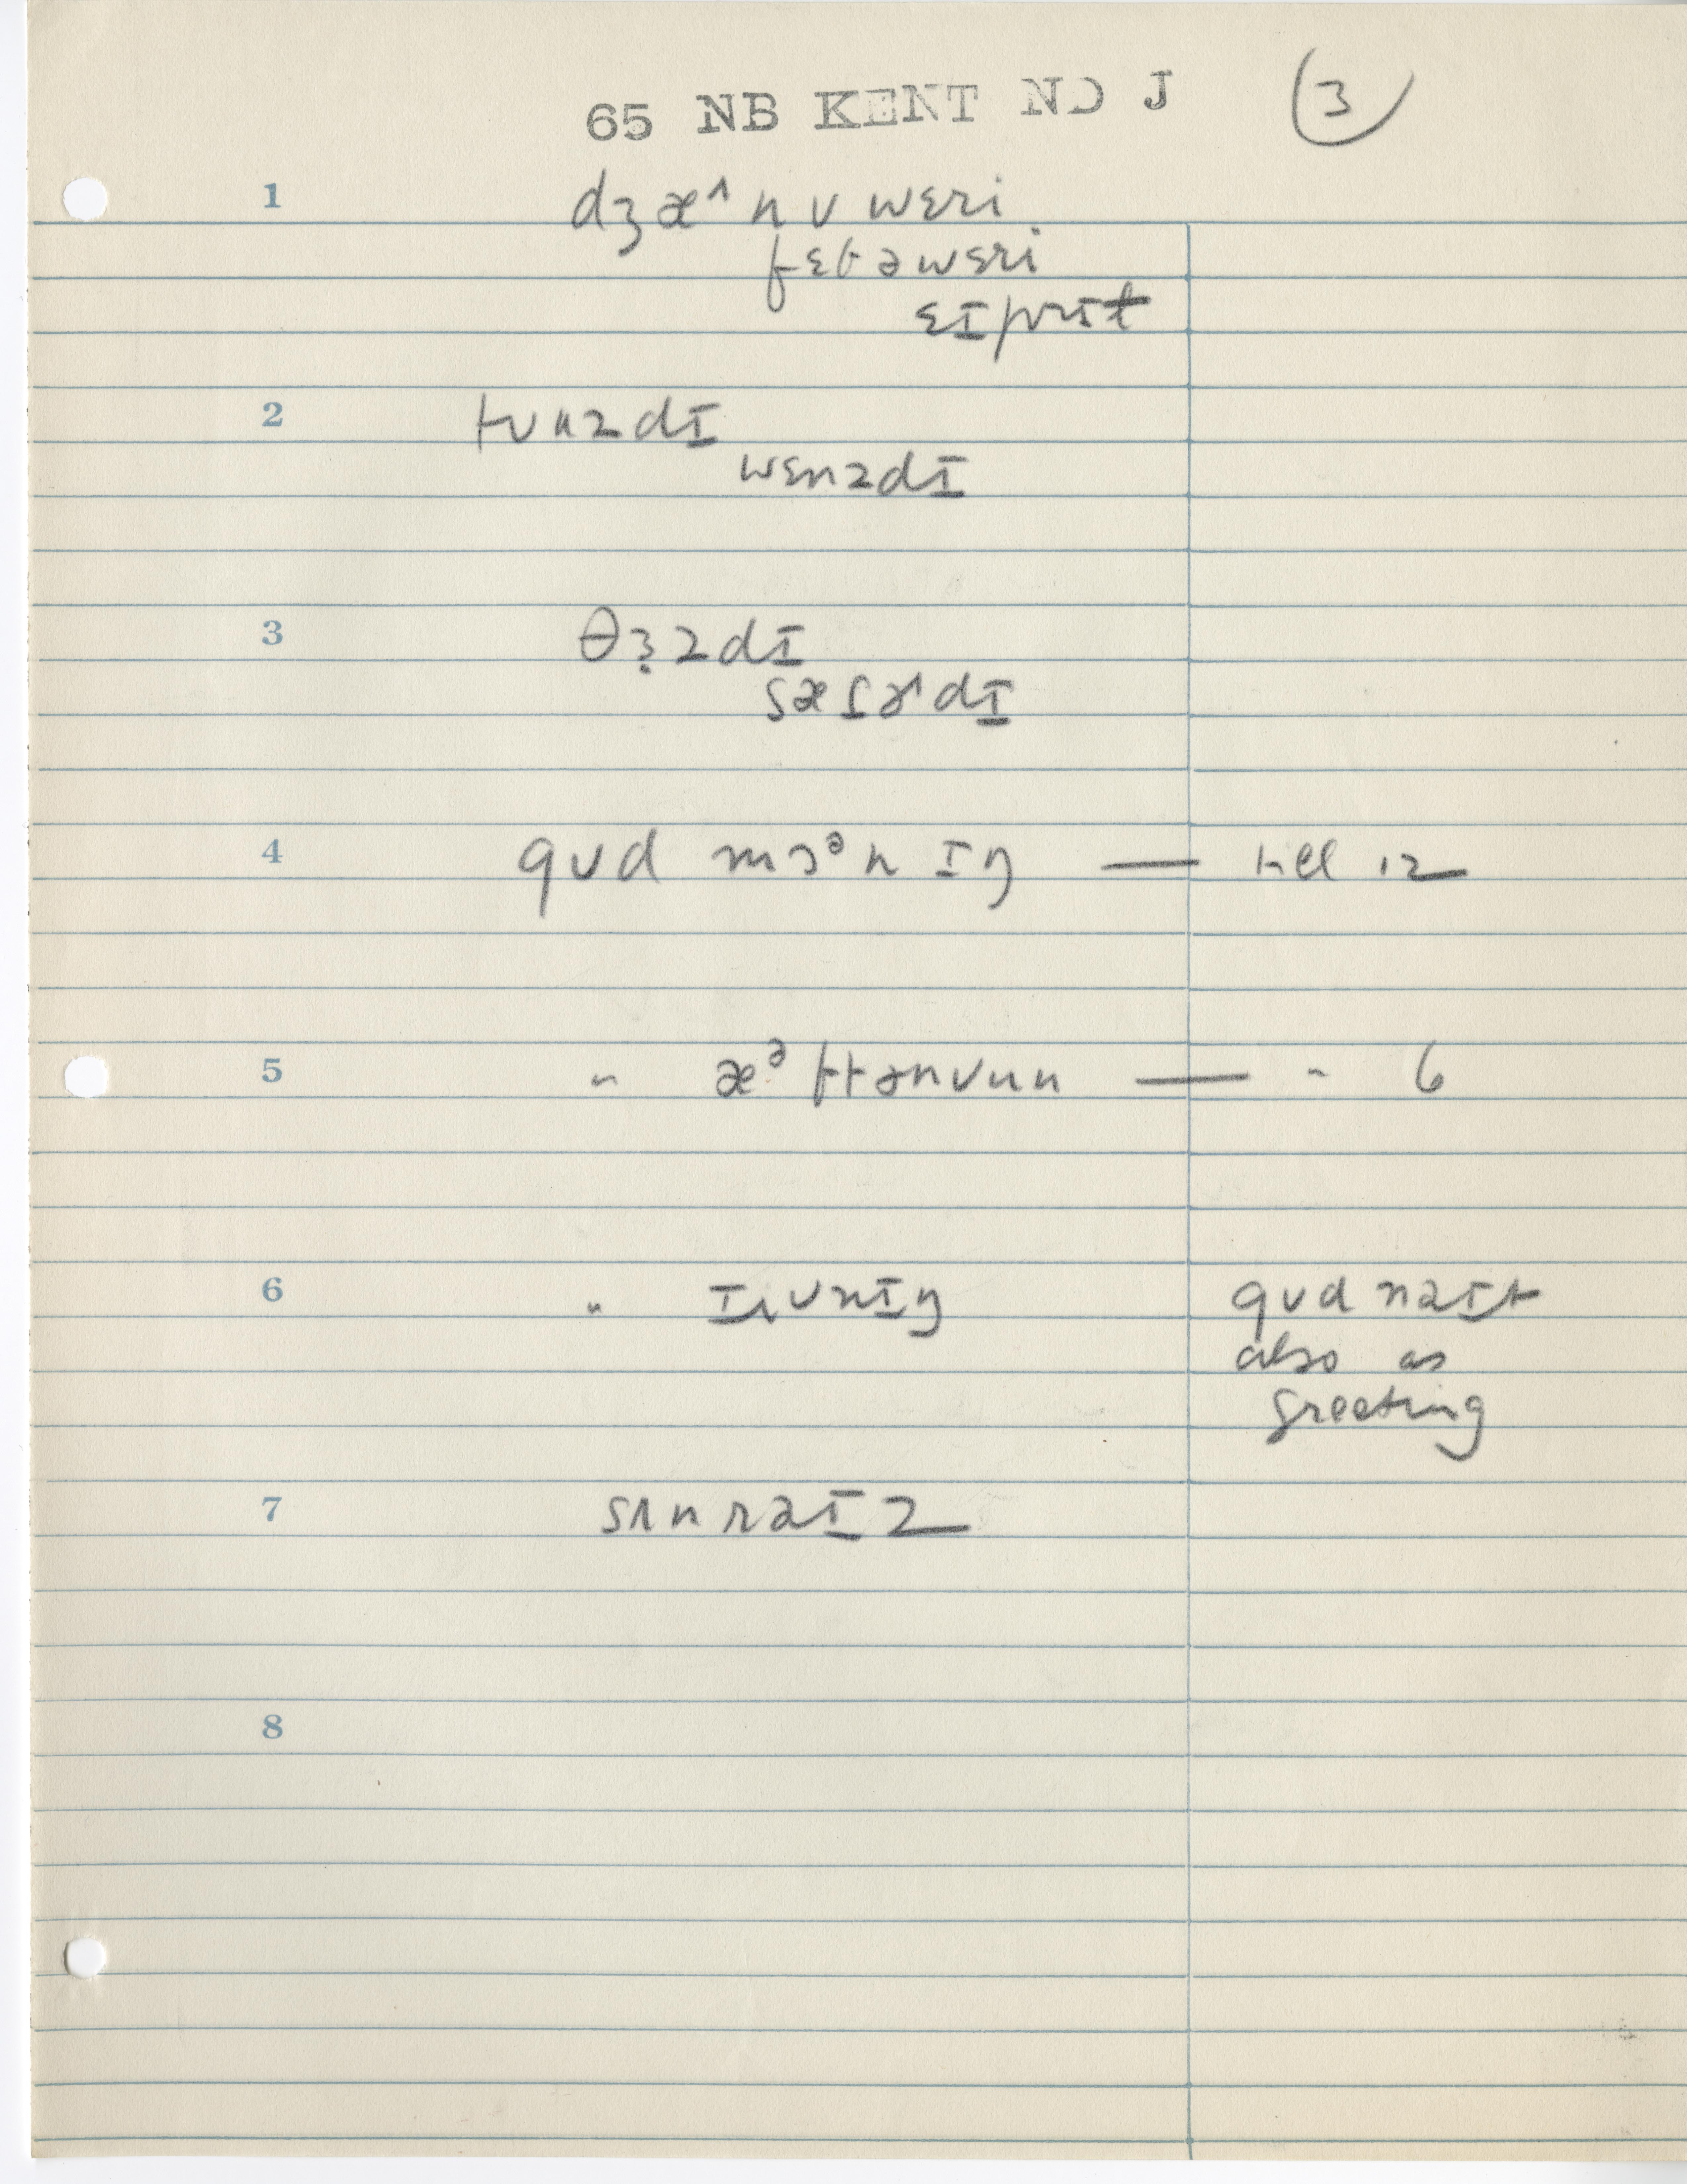 65 NB KENT NO J 3
1 dʒæ^nʊwɛri
fɛbəwɛri
ɛɪprɪt
2 tʊnzdɪ
wɛnzdɪ
3 θɜzdɪ
sætɚdɪ
4 gʊd mɔᵊnɪŋ — till 12
5 " æᵊftɚnʊun — " 6
6 " ɪvnɪŋ gʊd naɪt
also as
greeting
7 sʌnraɪz
8